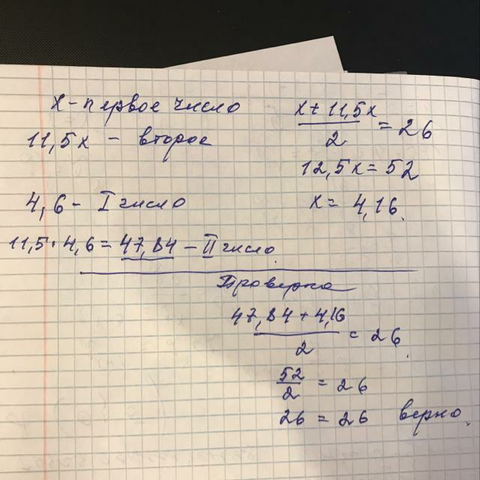 x - первое число
11,5x - второе
4,6 - I число
11,5 · 4,6 = 47,84 - II число.
x + 11,5x
2
= 26
12,5x = 52
x = 4,16.
Проверка
47,84 + 4,16
2
= 26.
52
2
= 26
26 = 26 верно.